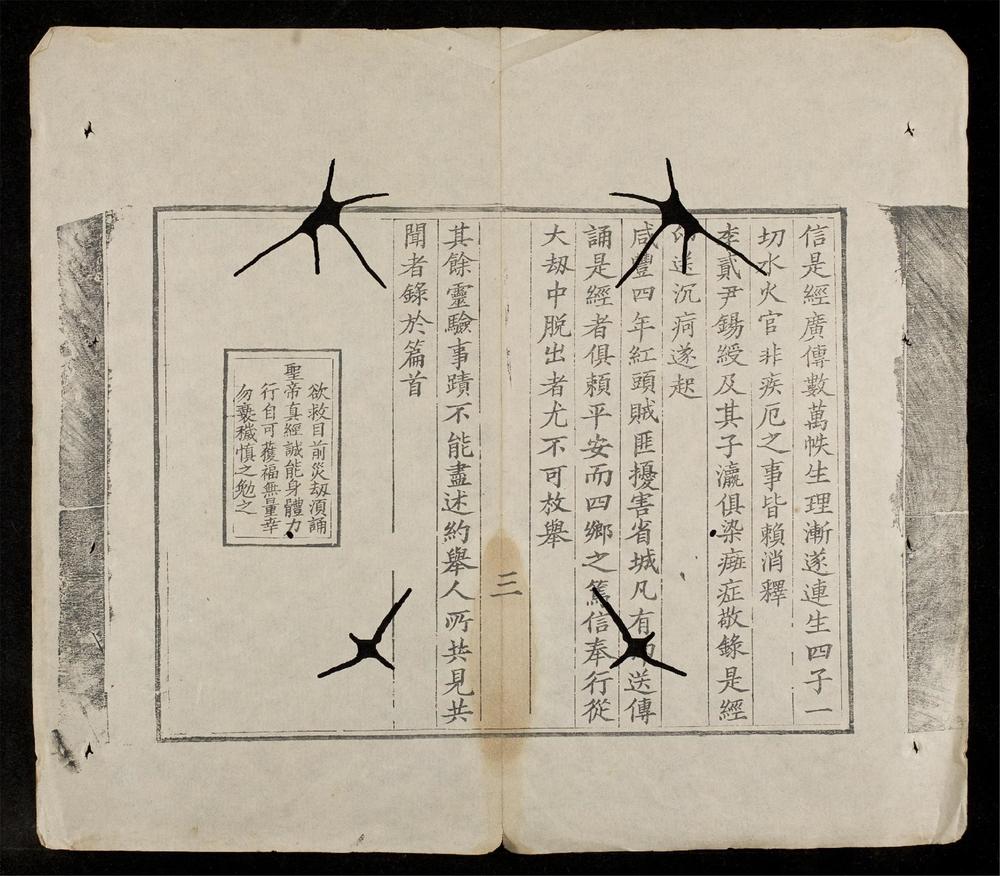 信是經廣傳數萬帙生理漸遂連生四子一
切水火官非疾厄之事皆賴消釋
李貳尹錫綬及其子瀛俱染㾮症敬錄是經
送沉疴遂起
咸豐四年紅頭賊匪擾害省城凡有送傳
誦是經者俱賴平安而四鄉之篤信奉行從
大刼中脱出者尤不可枚舉
三
其餘靈驗事蹟不能盡述約舉人所共見共
聞者錄於篇首
欲救目前災刼須誦
聖帝真經誠能身體力
行自可獲福無量幸
勿褻穢慎之勉之